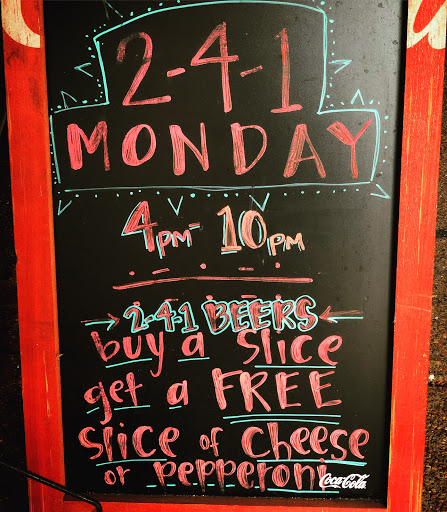 2-4-1
MONDAY
4pm-10pm
2-4-1 BEERS
buy a slice
get a FREE
slice of cheese
or pepperoni
Coca-Cola